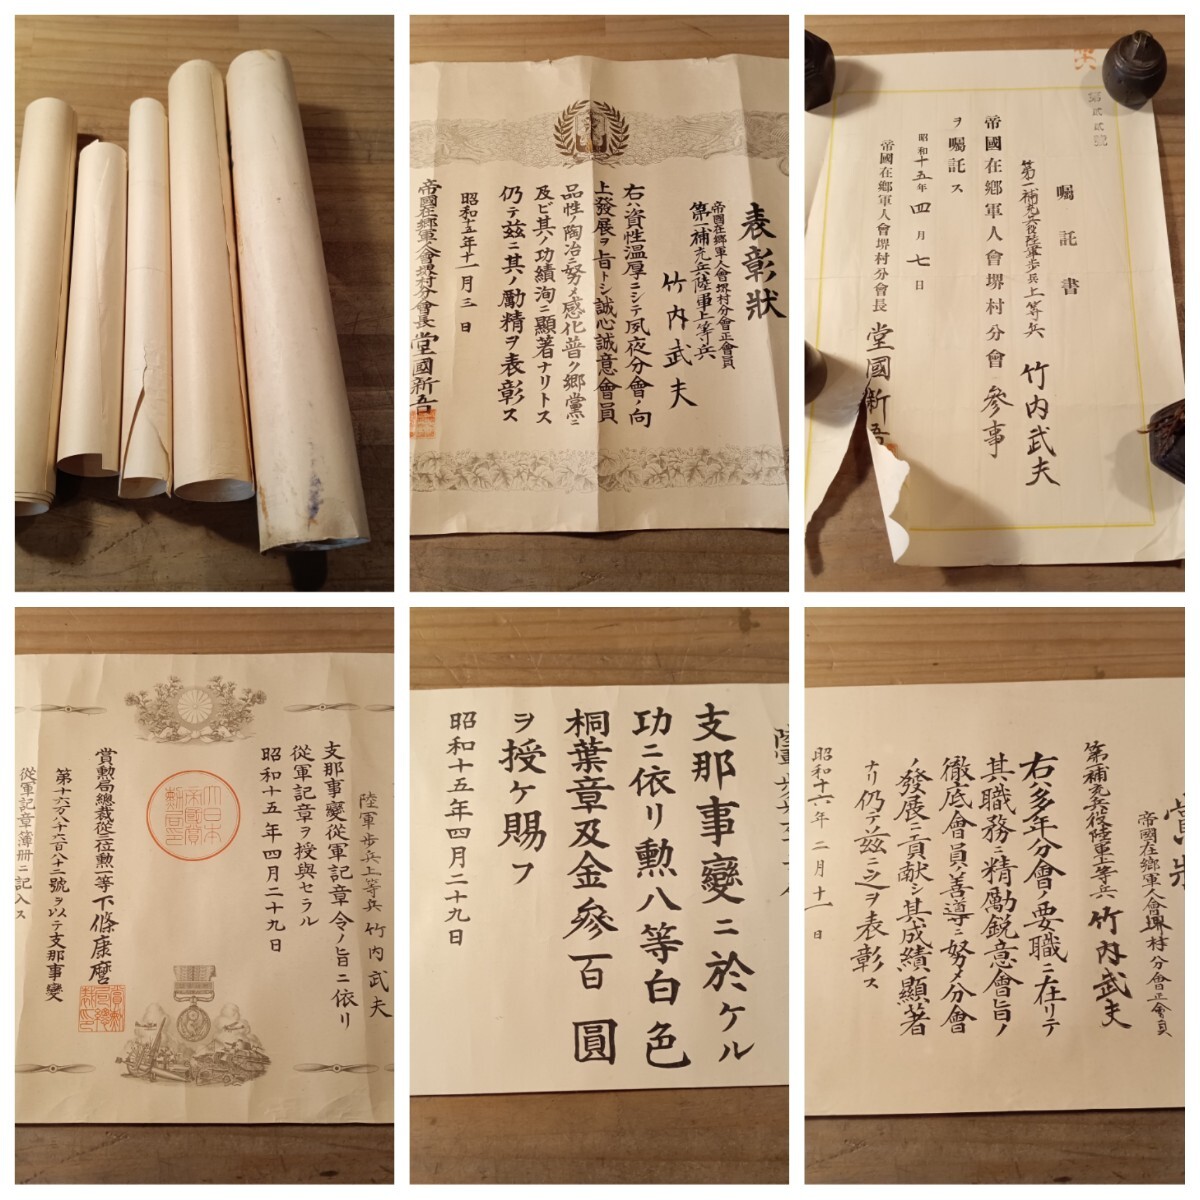 表彰狀
帝國在鄉軍人會堺村分會正會員
第一補充兵陸軍上等兵
竹內武夫
右ハ資性溫厚ニシテ夙夜分會ノ向
上發展ヲ旨トシ誠心誠意會員
品性ノ陶冶ニ努メ感化普ク鄉黨ニ
及ビ其ノ功績洵ニ顯著ナリトス
仍テ茲ニ其ノ勵精ヲ表彰ス
昭和十五年十一月三日
帝國在鄉軍人會堺村分會長堂國新吾
第貳貳號
囑託書
第一補充兵役陸軍步兵上等兵 竹內武夫
帝國在鄉軍人會堺村分會參事
ヲ囑託ス
昭和十五年四月七日
帝國在鄉軍人會堺村分會長 堂國新吾
陸軍步兵上等兵 竹內武夫
支那事變從軍記章令ノ旨ニ依リ
從軍記章ヲ授與セラル
昭和十五年四月二十九日
大日本
帝國賞
勲局印
賞勲局總裁從三位勲一等下條康麿
第十六万八千六百八十二號ヲ以テ支那事變
從軍記章簿冊ニ記入ス
支那事變ニ於ケル
功ニ依リ勲八等白色
桐葉章及金參百圓
ヲ授ケ賜フ
昭和十五年四月二十九日
賞狀
帝國在鄉軍人會堺村分會正會員
第一補充兵役陸軍上等兵 竹內武夫
右ハ多年分會ノ要職ニ在リテ
其職務ニ精勵銳意會旨ノ
徹底會員ノ善導ニ努メ分會
ノ發展ニ貢献シ其成績顯著
ナリ仍テ茲ニ之ヲ表彰ス
昭和十六年二月十一日